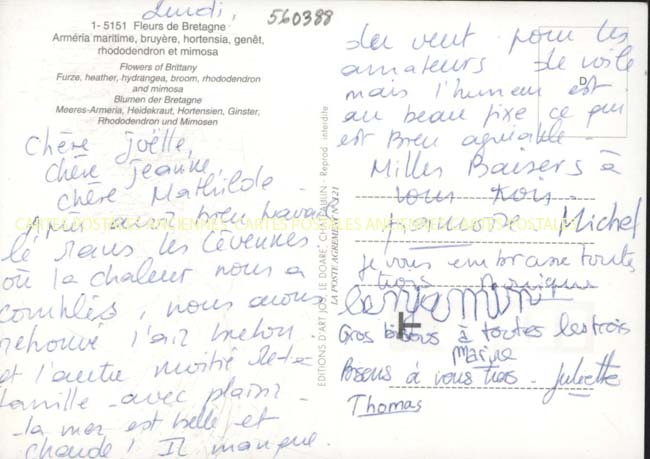 Lundi,
560388
1- 5151 Fleurs de Bretagne
Arméria maritime, bruyère, hortensia, genêt,
rhododendron et mimosa
Flowers of Brittany
Furze, heather, hydrangea, broom, rhododendron
and mimosa
Blumen der Bretagne
Meeres-Armeria, Heidekraut, Hortensien, Ginster,
Rhododendron und Mimosen
Chère Joëlle,
chère Jeanne,
chère Mathilde.
avoir bien
lé dans les Cévennes
où la chaleur nous a
comblés, nous avons
retrouvé l'air breton
et l'autre moitié de la
famille avec plaisir.
la mer est belle et
chaude! Il manque
EDITIONS D'ART JOS LE DOARÉ, CHATEAULIN - Reprod. interdite
LA POSTE AGREMENT N° 321
du vent pour les
amateurs de voile
mais l'humeur est
au beau fixe ce qui
est bien agréable.
D
Milles Baisers à
tous trois.
Michel
je vous embrasse toutes
trois
benjamin
Gros bisous à toutes les trois
Marine
Bisous à vous trois - Juliette
Thomas
CARTES POSTALES ANCIENNES CARTES POSTALES ANCIENNES CARTES POSTALES